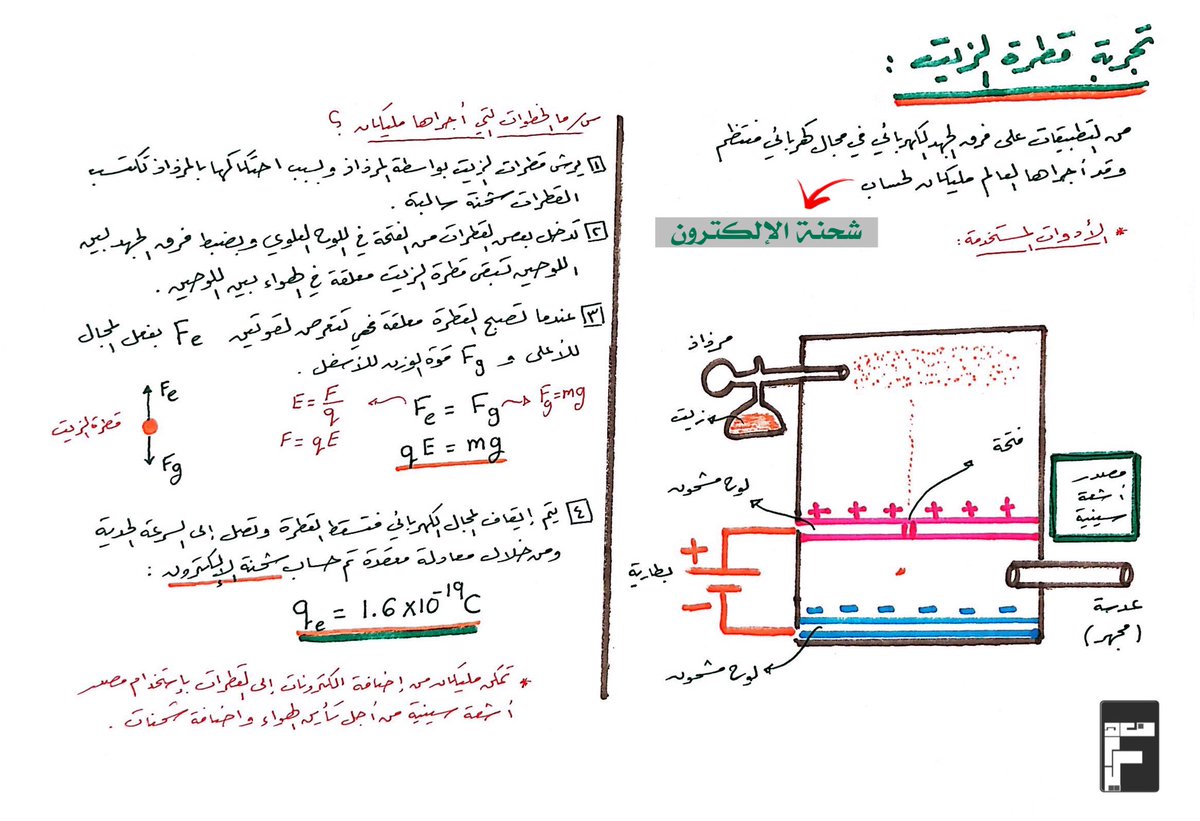 تجربة قطرة الزيت :
من التطبيقات على فرق الجهد الكهربائي في مجال كهربائي منتظم
وقد أجراها العالم مليكان لحساب
شحنة الإلكترون
* الأدوات المستخدمة :
مرذاذ
زيت
فتحة
لوح مشحون
مصدر
أشعة
سينية
+ + + + + +
+
بطارية
-
- - - - - -
عدسة
(مجهر)
لوح مشحون
س/ ما الخطوات التي أجراها مليكان ؟
١ يرش قطرات الزيت بواسطة المرذاذ وبسبب احتكاكها بالمرذاذ تكتسب
القطرات شحنة سالبة .
٢ تدخل بعض القطرات من الفتحة في اللوح العلوي وبضبط فرق الجهد بين
اللوحين تبقى قطرة الزيت معلقة في الهواء بين اللوحين .
٣ عندما تصبح القطرة معلقة فهي تتعرض لقوتين Fe بفعل المجال
للأعلى و Fg قوة الوزن للأسفل .
Fe
قطرة الزيت
Fg
E = F/q
F = qE
Fe = Fg
Fg = mg
qE = mg
٤ يتم إيقاف المجال الكهربائي فتسقط القطرة وتصل إلى السرعة الحدية
ومن خلال معادلة معقدة تم حساب شحنة الإلكترون :
qe = 1.6 x 10⁻¹⁹ C
* تمكن مليكان من إضافة الكترونات إلى القطرات بإستخدام مصدر
أشعة سينية من أجل تأين الهواء واضافة شحنات .